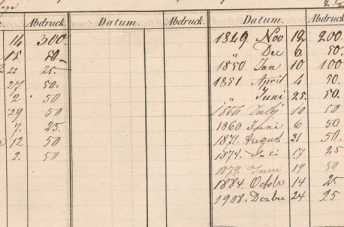 Abdruck. Datum. Abdruck. Datum. Abdruck.
14 300 1849 Nov 12. 200
15 50 " Dec 6 50.
21 25. 1850 Jan 10 100
27 50. 1851 April 4 50.
2 50 " Juni 25. 50.
29 50 July 10 50
7. 25. 1860 Juni 6 50
12 50 1871 August 21 50.
2. 50 1874. Juli 17 25
Juni 19 50
1884 Octobr 14 25
1908. Dezbr 24 25